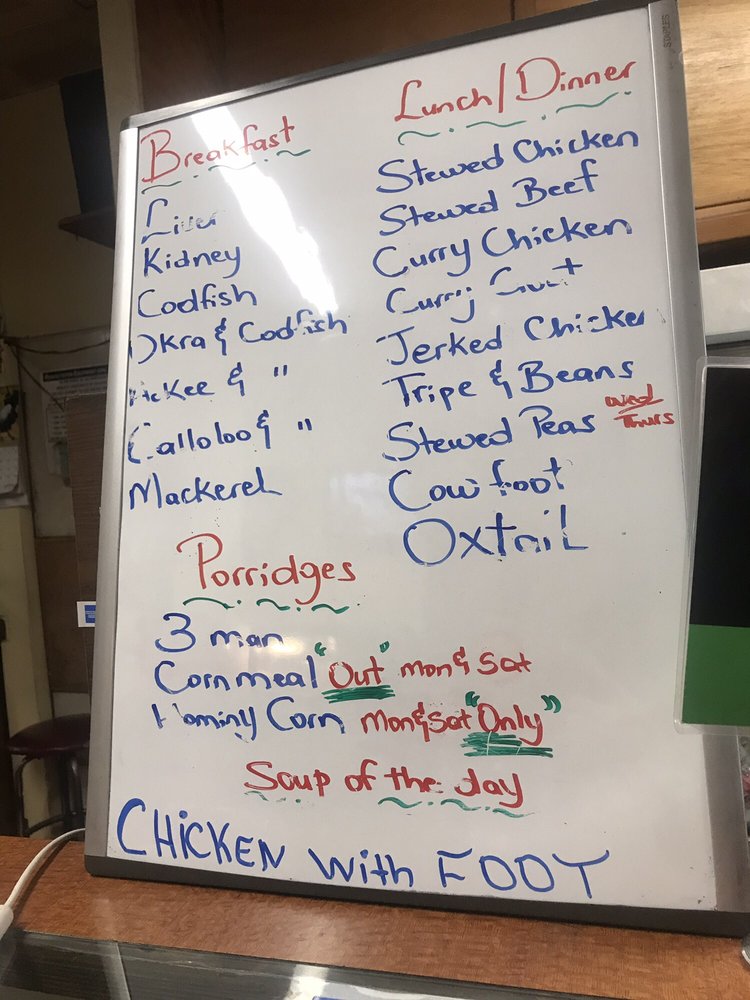 Breakfast
Liver
Kidney
Codfish
Okra & Codfish
Ackee & "
Calloloo & "
Mackerel
Lunch/Dinner
Stewed Chicken
Stewed Beef
Curry Chicken
Curry Goat
Jerked Chicken
Tripe & Beans
Stewed Peas Wed Thurs
Cow foot
Oxtail
Porridges
3 man
Corn meal "Out" mon & Sat
Hominy Corn mon & Sat "Only"
Soup of the day
CHiCKEN With FOOT
STAPLES